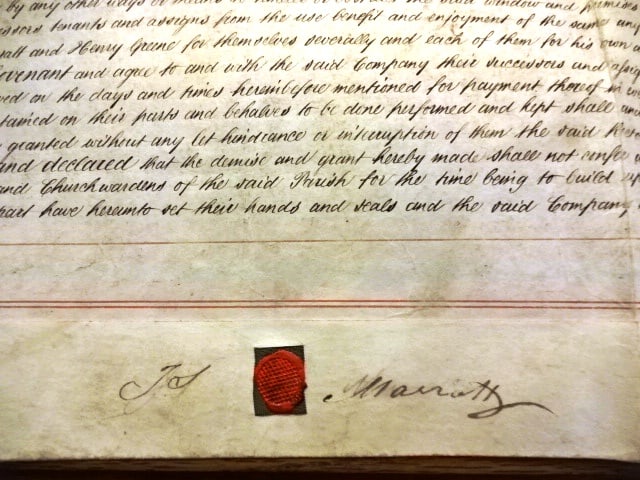 by any other ways or means
cessors tenants and assigns from the use benefit and enjoyment of the same
and Henry Grane for themselves severally and each of them for his own
ovenant and agree to and with the said Company their successors and assig
ved on the days and times hereinbefore mentioned for payment thereof in
tained on their parts and behalves to be done performed and kept shall and
granted without any let hindrance or interruption of them the said
and declared that the demise and grant hereby made shall not confer
and Churchwardens of the said Parish for the time being to build
part have hereunto set their hands and seals and the said Company